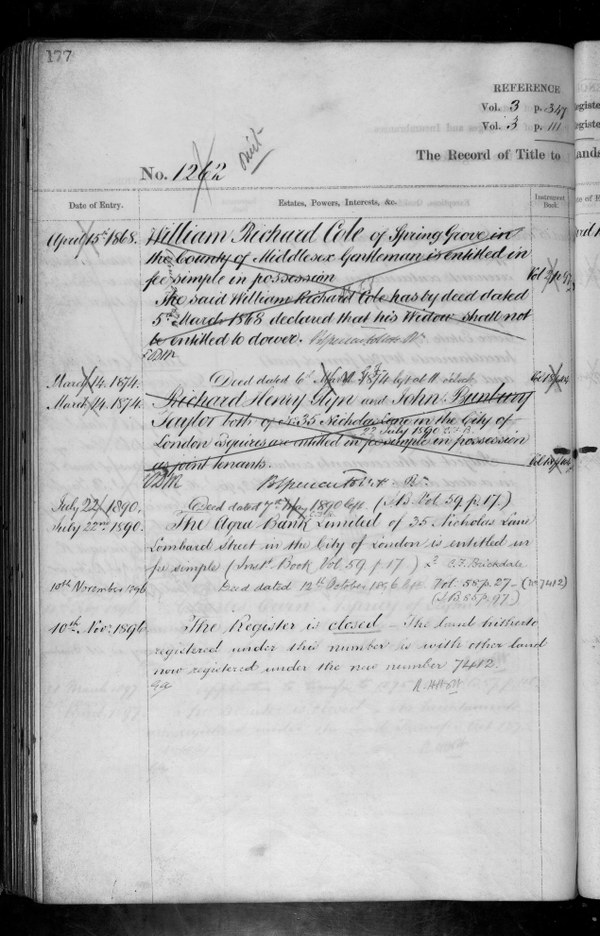 177
REFERENCE
Vol. 3 p. 347
Vol. 3 p. 111
The Record of Title to
No. 1262 Omit
Date of Entry.
Estates, Powers, Interests, &c.
Instrument Book
April 15th 1868.
William Richard Cole of Spring Grove in
the County of Middlesex Gentleman is entitled in
fee simple in possession
The said William Richard Cole has by deed dated
5th March 1868 declared that his Widow shall not
be entitled to dower.
March 14. 1874.
Deed dated 6th 1874
March 14. 1874.
Richard Henry Glyn and John Bunbury
Taylor both of 35 Nicholas Lane in the City of
22 July 1890
London Esquires are entitled in fee simple in possession
as joint tenants.
July 22/1890.
Deed dated 7th May 1890 (I.B. Vol. 59. p. 17.)
July 22nd 1890.
The Agra Bank Limited of 35 Nicholas Lane
Lombard Street in the City of London is entitled in
fee simple (Inst. Book Vol. 59 p. 17.) C. F. Brickdale
10th November 1896
Deed dated 12th October 1896 Vol. 58 p. 27 (No 7412)
(I.B. 85 p. 97.)
10th Nov. 1896
The Register is closed – The land hitherto
registered under this number is with other land
now registered under the new number 7412.